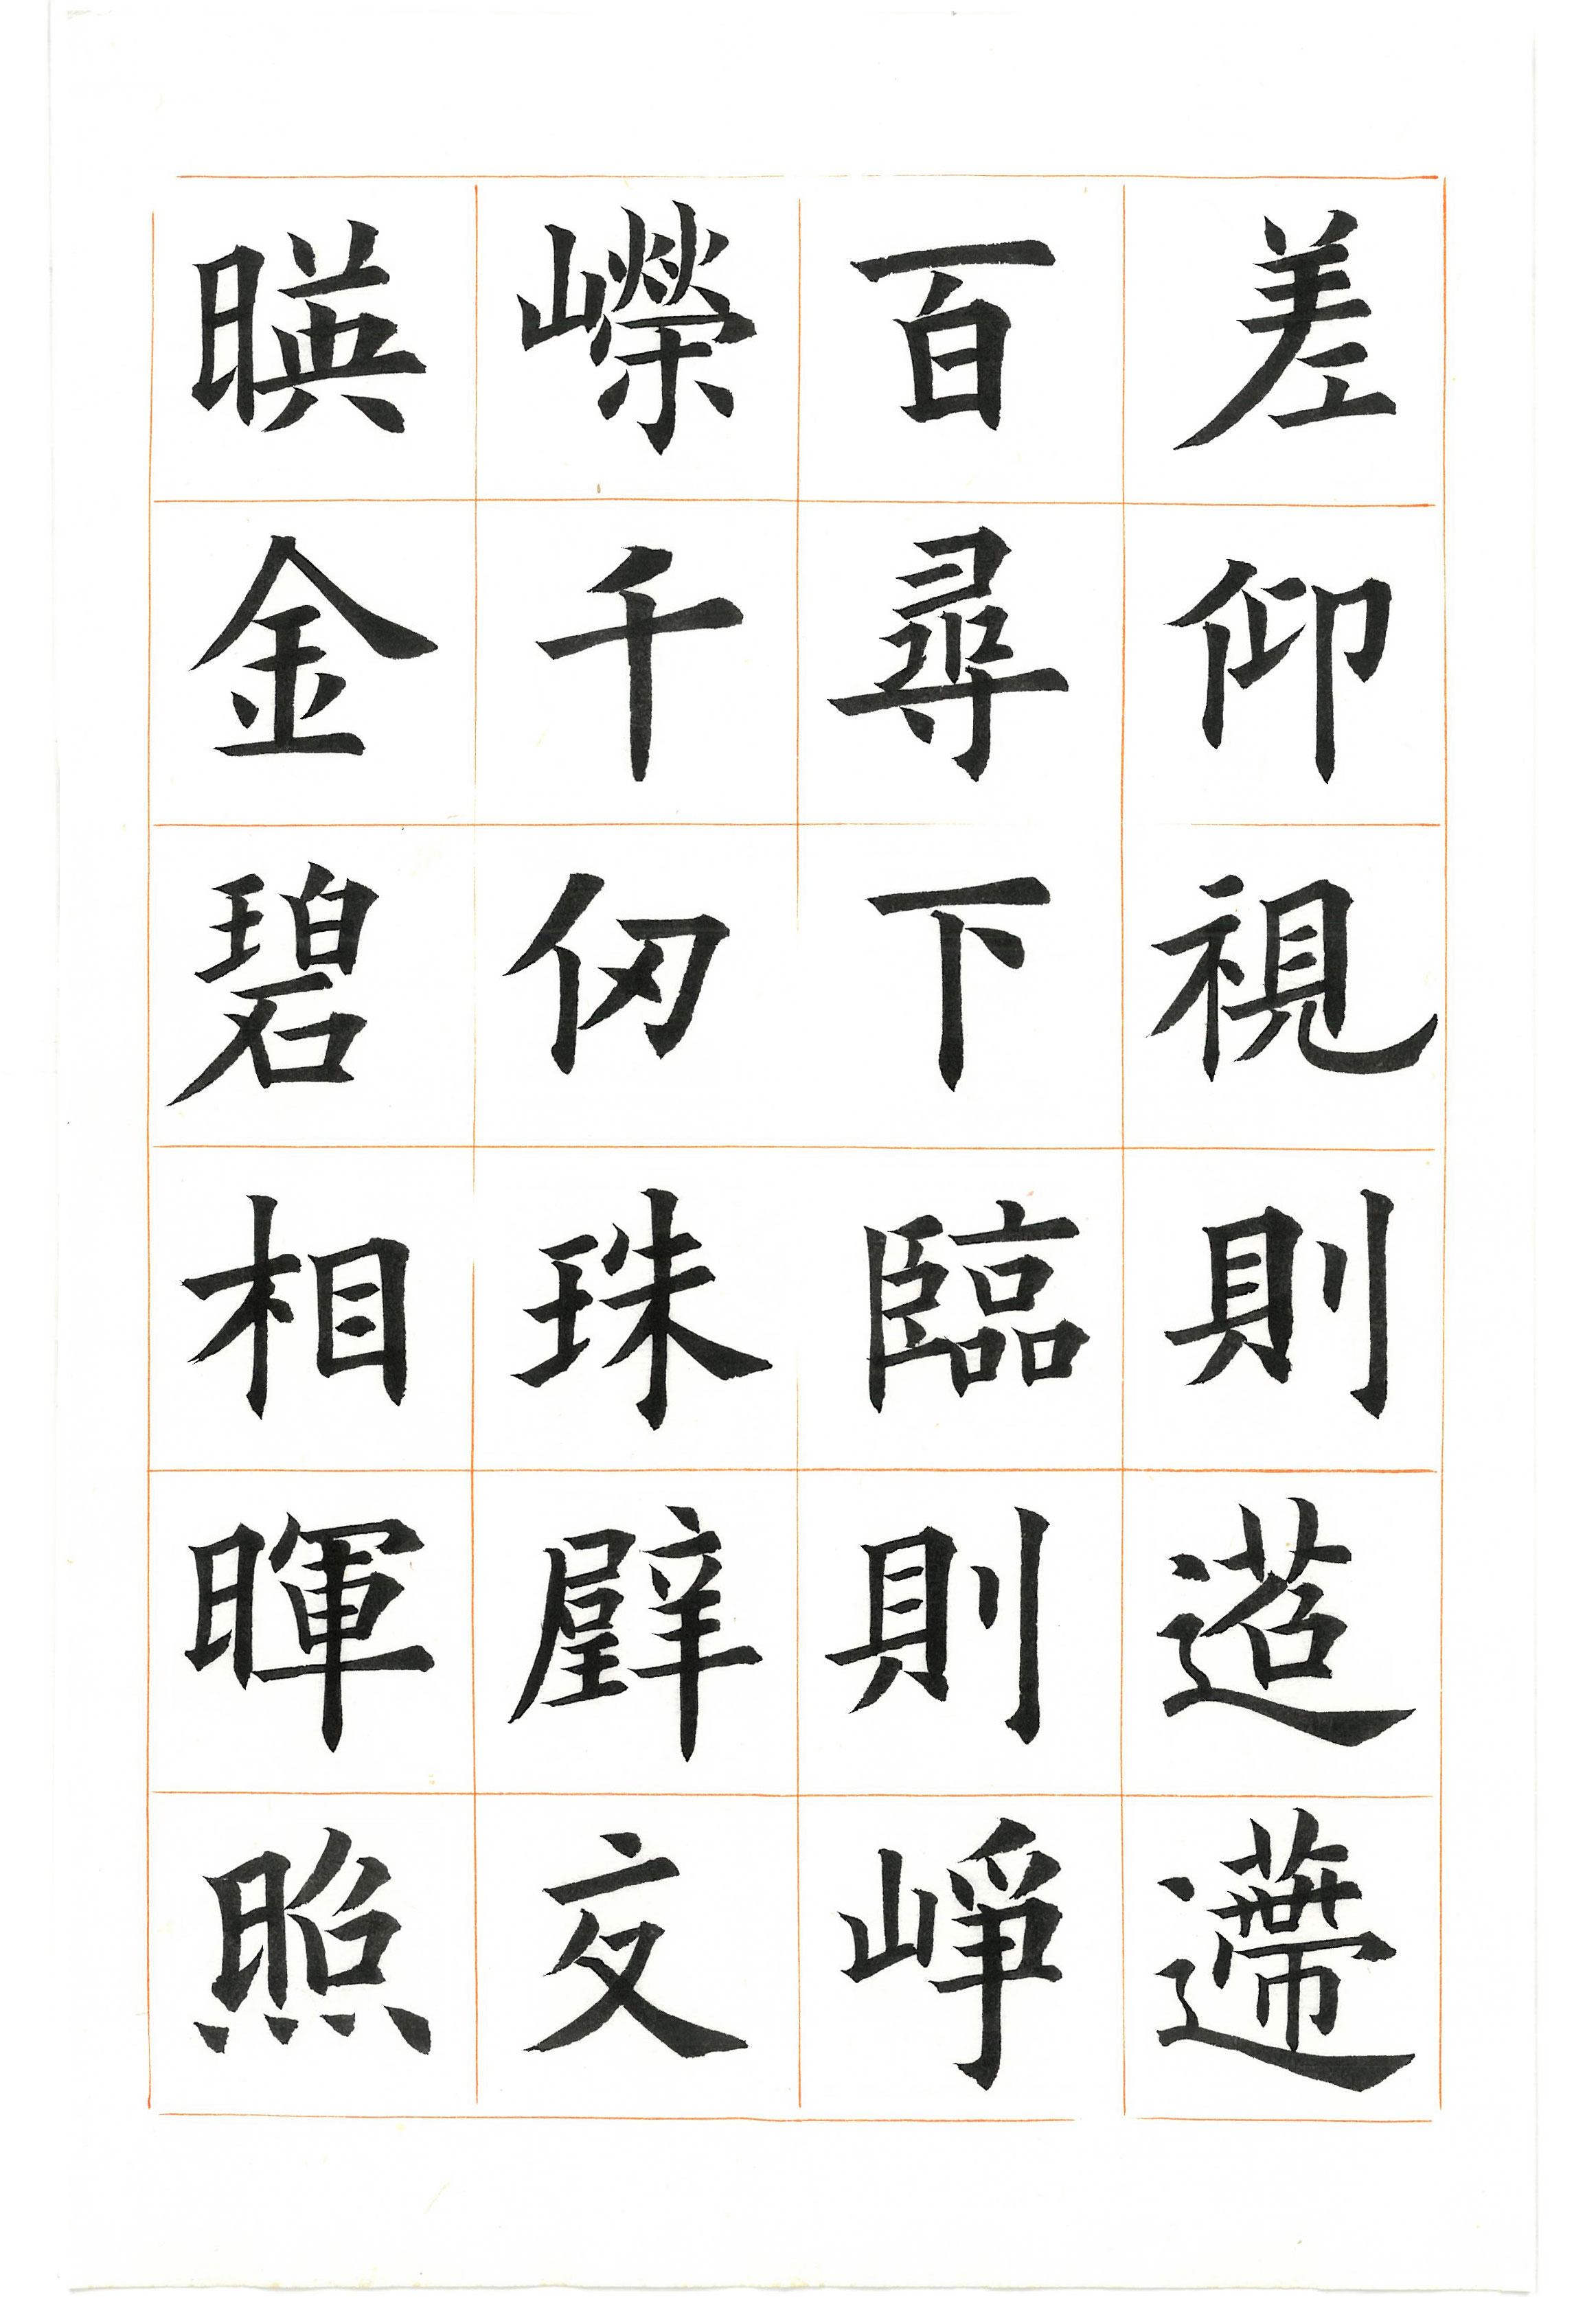 差仰視則迢遰
百尋下臨則崢
嶸千仞珠璧交
暎金碧相暉照